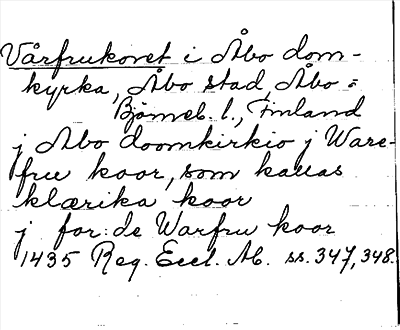 Vårfrukoret i Åbo dom-
kyrka, Åbo stad, Åbo =
Björneb. l., Finland
j Abo doomkirkio j Ware-
fru koor, som kallas
klærika koor
j for:de Warfru koor
1435 Reg. Eccl. Ab. ss. 347, 348.